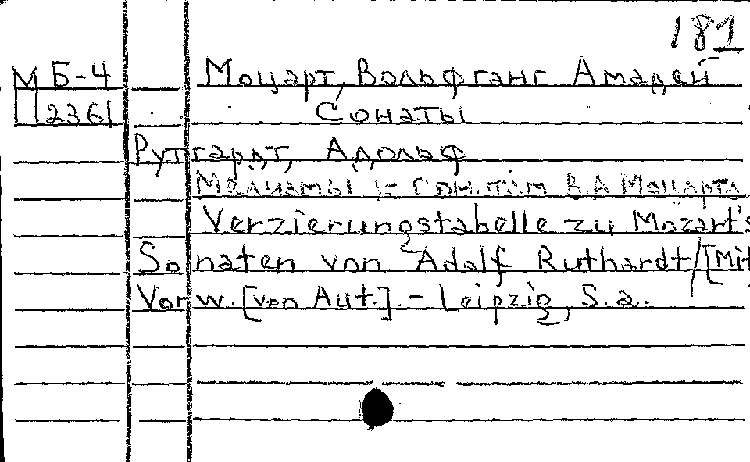 181
М Б-4 Моцарт, Вольфганг Амадей
П 2361 Сонаты
Рутгардт, Адольф
Мелизмы к сонатам В.А Моцарта
Verzierungstabelle zu Mozart's
Sonaten von Adolf Ruthardt/[Mit
Vorw. [von Aut.]. - Leipzig, S.a.